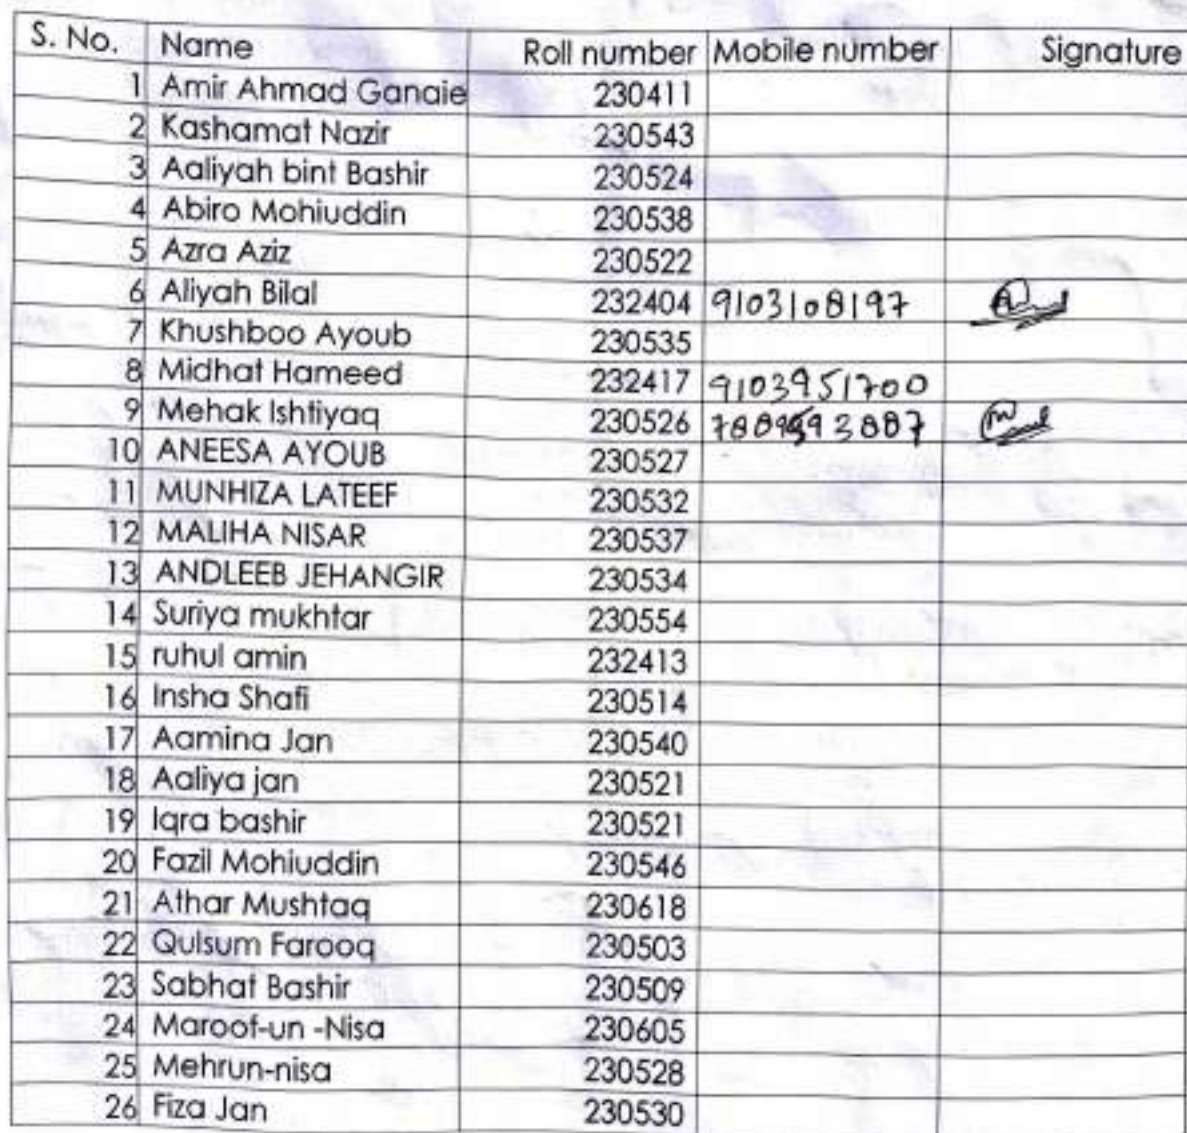 S. No. Name Roll number Mobile number Signature
1 Amir Ahmad Ganaie 230411
2 Kashamat Nazir 230543
3 Aaliyah bint Bashir 230524
4 Abiro Mohiuddin 230538
5 Azra Aziz 230522
6 Aliyah Bilal 232404 9103108197
7 Khushboo Ayoub 230535
8 Midhat Hameed 232417 9103951700
9 Mehak Ishtiyaq 230526
10 ANEESA AYOUB 230527
11 MUNHIZA LATEEF 230532
12 MALIHA NISAR 230537
13 ANDLEEB JEHANGIR 230534
14 Suriya mukhtar 230554
15 ruhul amin 232413
16 Insha Shafi 230514
17 Aamina Jan 230540
18 Aaliya jan 230521
19 Iqra bashir 230521
20 Fazil Mohiuddin 230546
21 Athar Mushtaq 230618
22 Qulsum Farooq 230503
23 Sabhat Bashir 230509
24 Maroof-un -Nisa 230605
25 Mehrun-nisa 230528
26 Fiza Jan 230530